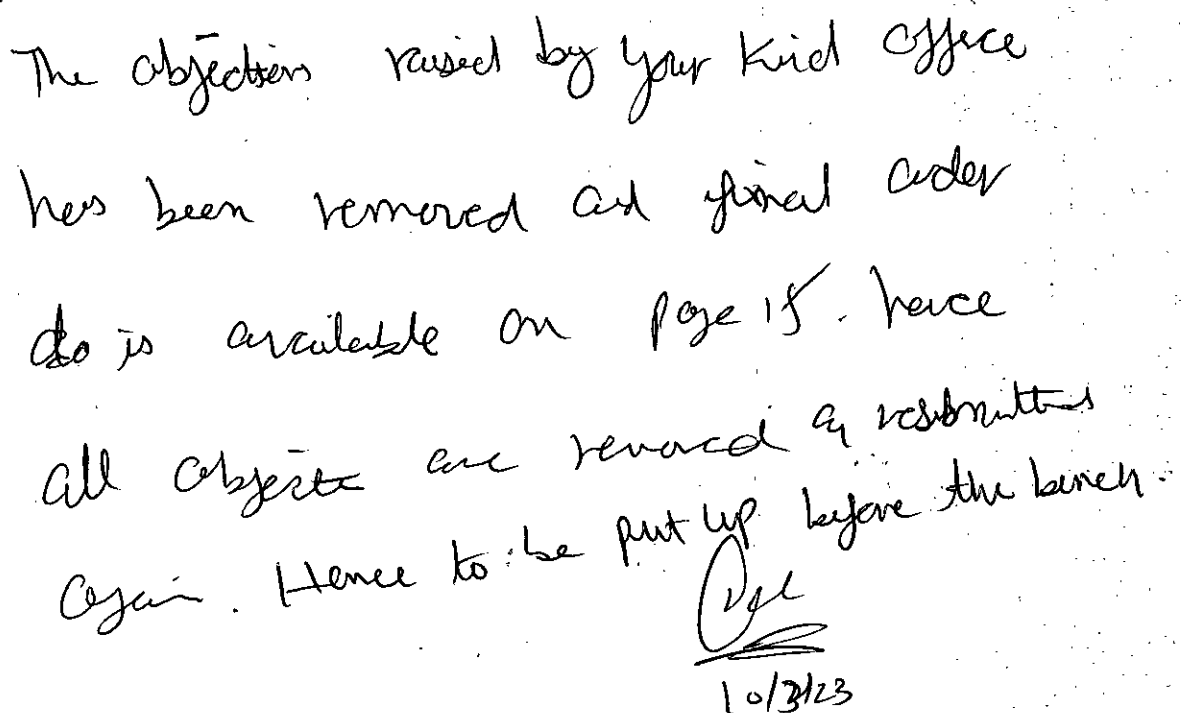 The objections raised by your kind office
has been removed and final order
also is available on page 15. hence
all objects are removed & resubmitted
again. Hence to be put up before the bench.
10/3/23